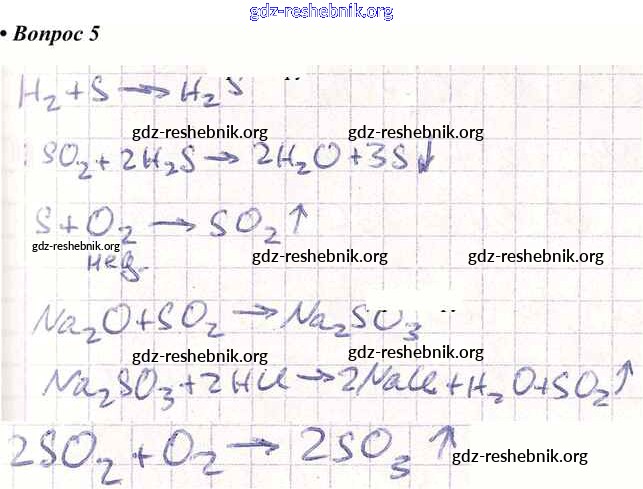 gdz-reshebnik.org
• Вопрос 5
H₂ + S → H₂S
gdz-reshebnik.org gdz-reshebnik.org
SO₂ + 2H₂S → 2H₂O + 3S↓
S + O₂ → SO₂↑
gdz-reshebnik.org gdz-reshebnik.org gdz-reshebnik.org
нед.
Na₂O + SO₂ → Na₂SO₃
gdz-reshebnik.org gdz-reshebnik.org
Na₂SO₃ + 2HCl → 2NaCl + H₂O + SO₂↑
2SO₂ + O₂ → 2SO₃↑
gdz-reshebnik.org